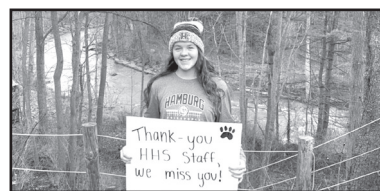 HAMBURG
Thank-you
HHS Staff,
we miss you!